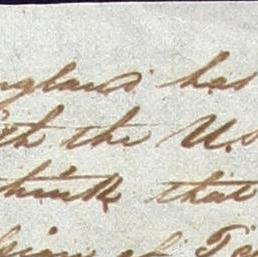 ngland has
th the U.S
think that
of Te